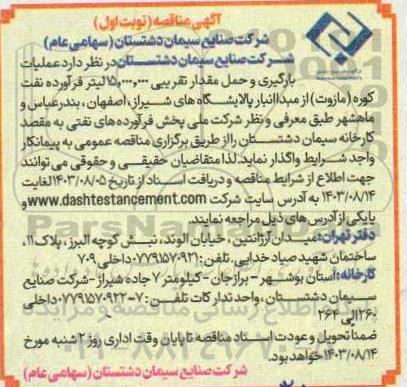 آگهی مناقصه (نوبت اول)
شرکت صنایع سیمان دشتستان (سهامی عام)
شرکت صنایع سیمان دشتستان در نظر دارد عملیات
بارگیری و حمل مقدار تقریبی ۱۵,۰۰۰,۰۰۰ لیتر فرآورده نفت
کوره (مازوت) از مبدا انبار پالایشگاه های شیراز، اصفهان، بندرعباس و
ماهشهر طبق معرفی و نظر شرکت ملی پخش فرآورده های نفتی به مقصد
کارخانه سیمان دشتستان را از طریق برگزاری مناقصه عمومی به پیمانکار
واجد شرایط واگذار نماید. لذا متقاضیان حقیقی و حقوقی می توانند
جهت اطلاع از شرایط مناقصه و دریافت اسناد از تاریخ ۱۴۰۳/۰۸/۰۵ لغایت
۱۴۰۳/۰۸/۱۴ به آدرس سایت شرکت www.dashtestancement.com و
یا یکی از آدرس های ذیل مراجعه نمایند.
دفتر تهران: میدان آرژانتین، خیابان الوند، نبش کوچه البرز، پلاک ۱۱،
ساختمان شهید صیاد خدایی. تلفن: ۰۷۷۹۱۵۷۰۹۲۱ داخلی ۷۰۹
کارخانه: استان بوشهر - برازجان - کیلومتر ۷ جاده شیراز - شرکت صنایع
سیمان دشتستان، واحد تدارکات تلفن: ۷-۰۷۷۹۱۵۷۰۹۲۲ داخلی
۲۶۰ الی ۲۶۲
ضمنا تحویل و عودت اسناد مناقصه تا پایان وقت اداری روز ۲ شنبه مورخ
۱۴۰۳/۰۸/۱۴ خواهد بود.
شرکت صنایع سیمان دشتستان (سهامی عام)